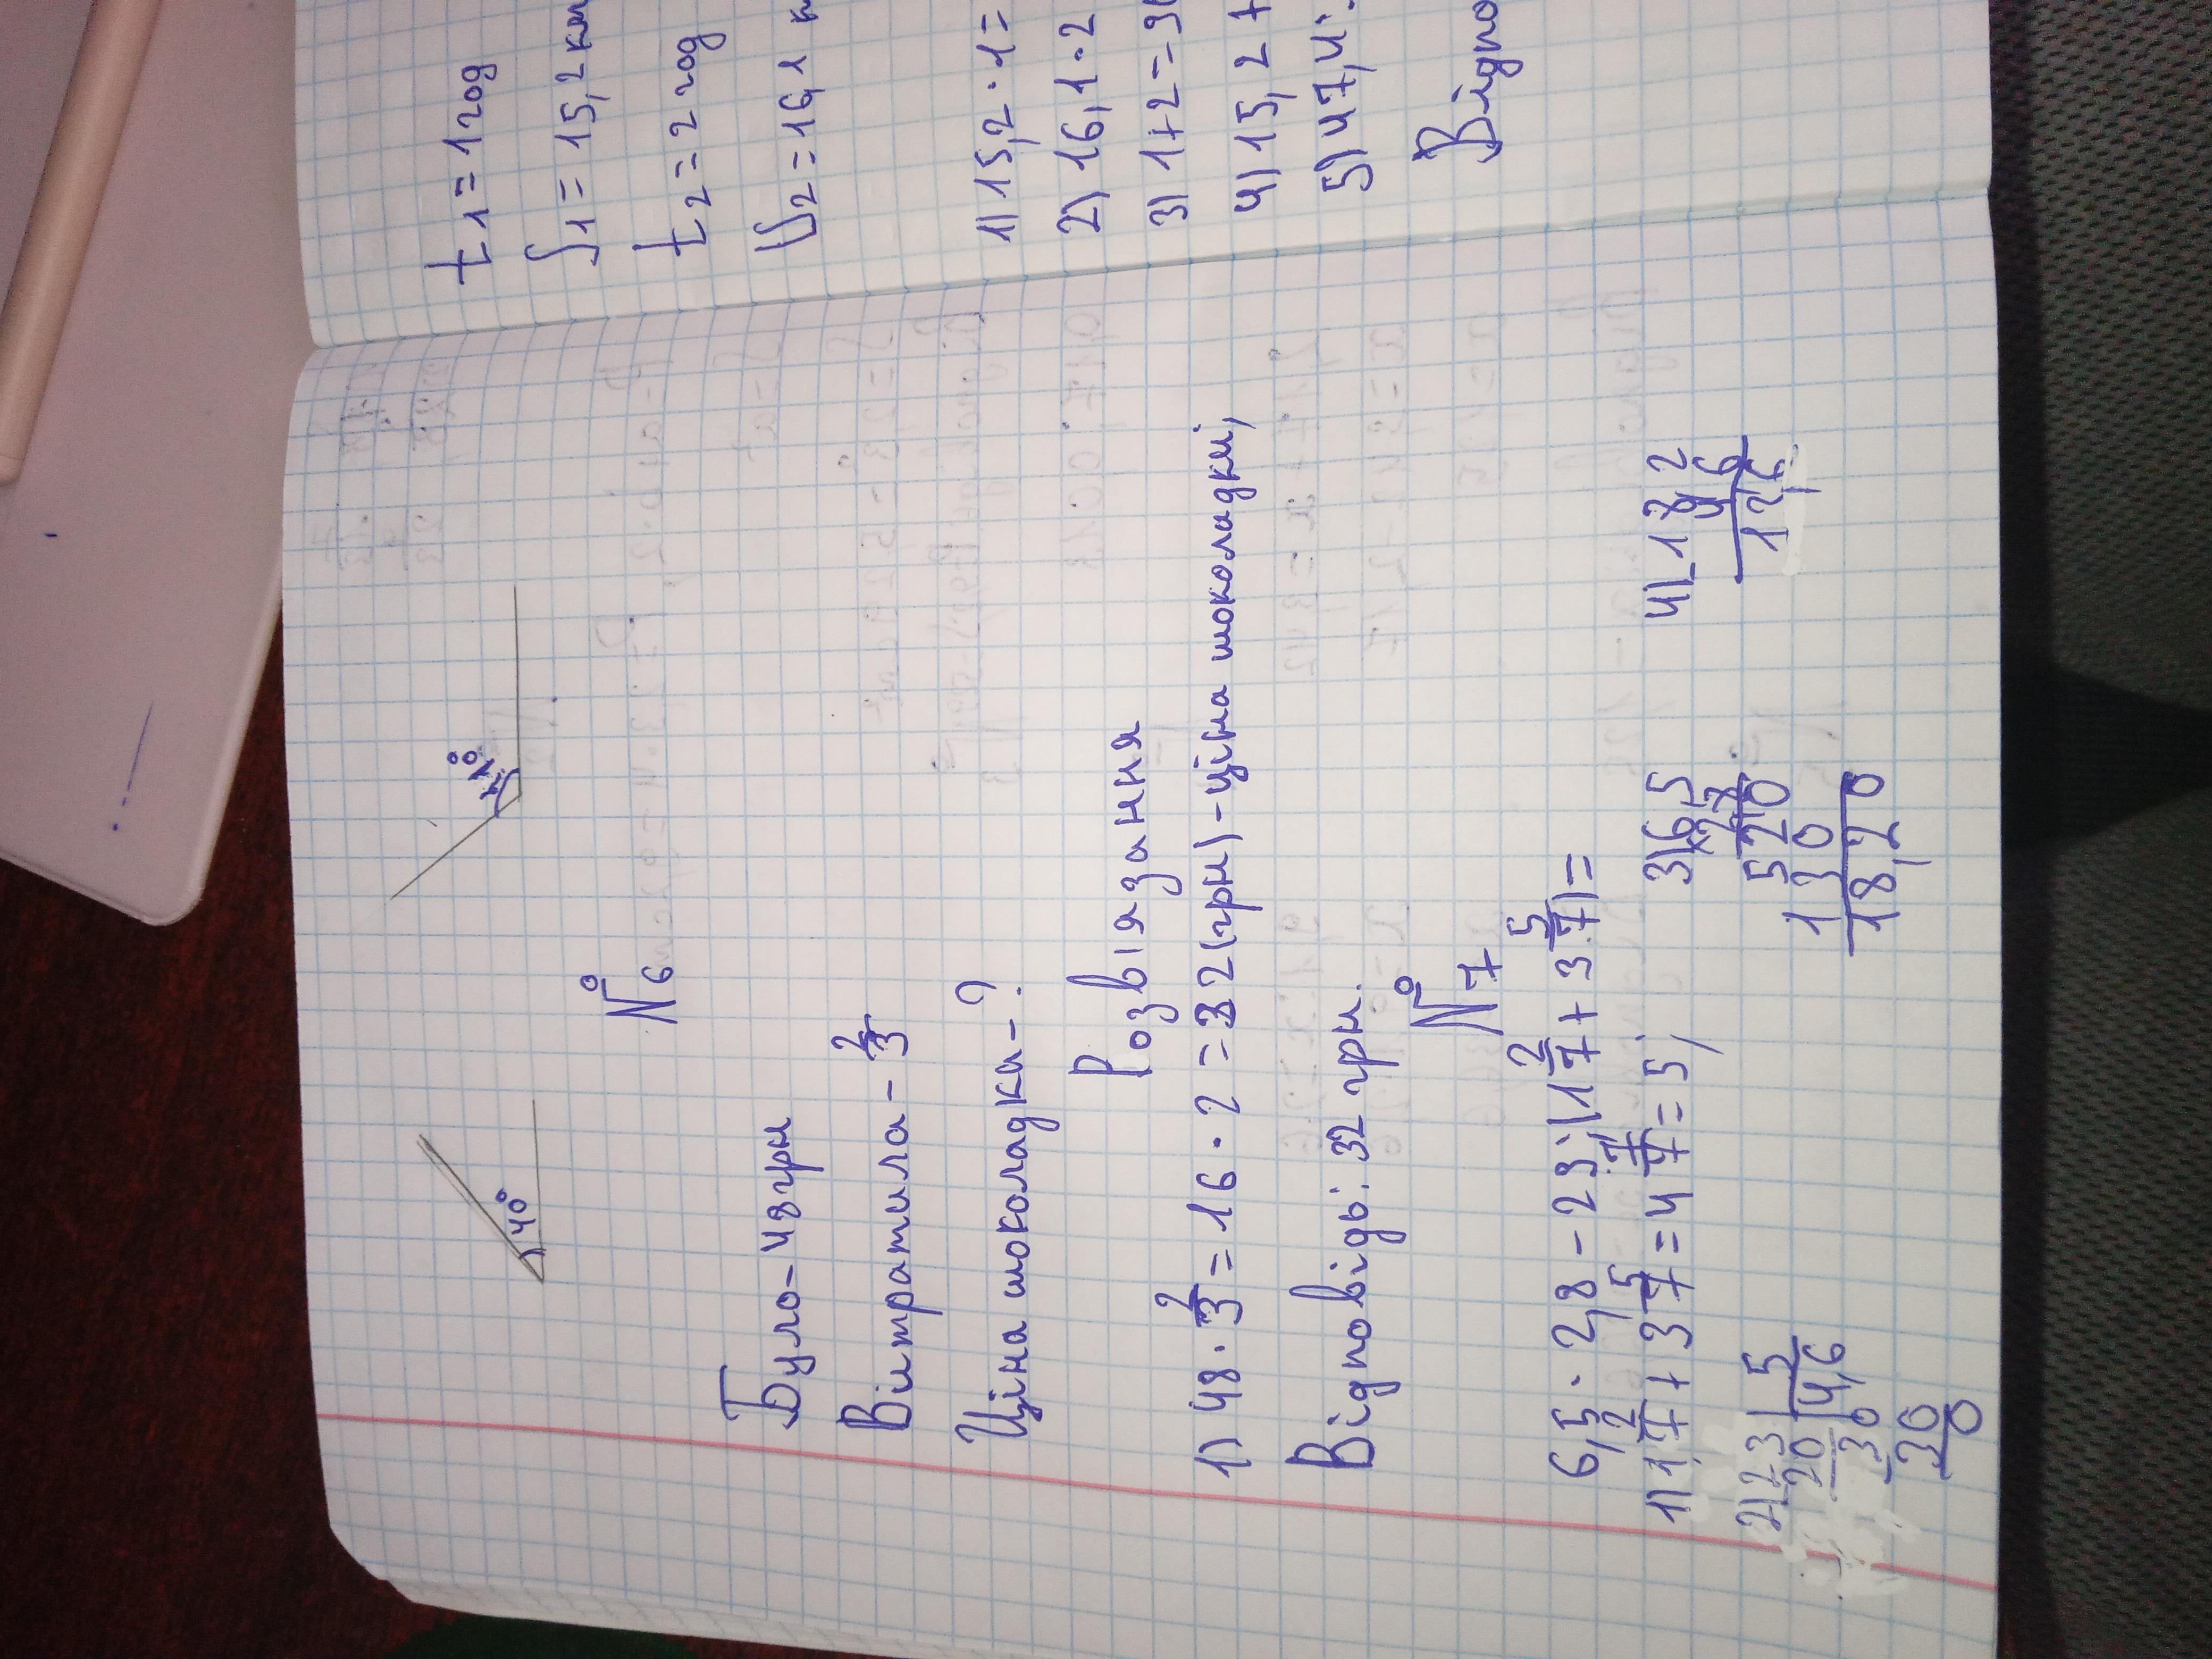 40°
№ 6
Було - 48 грн
Витратила - 2/3
Ціна шоколадки - ?
Розв'язання
1) 48 · 2/3 = 16 · 2 = 32 (грн) - ціна шоколадки;
Відповідь: 32 грн.
№ 7
6,5 · 2,8 - 23 : (1 2/7 + 3 5/7) =
1) 1 2/7 + 3 5/7 = 4 7/7 = 5;
2) 23 | 5
20 | 4,6
30
30
0
3) 6,5
× 2,8
520
130
18,20
4) - 18,2
4,6
13,6
t1 = 1 год
S1 = 15,2 км
t2 = 2 год
V2 = 16,1 к
1) 15,2 · 1 =
2) 16,1 · 2
3) 1 + 2 = 3
4) 15,2 +
5) 47,4 :
Відпо